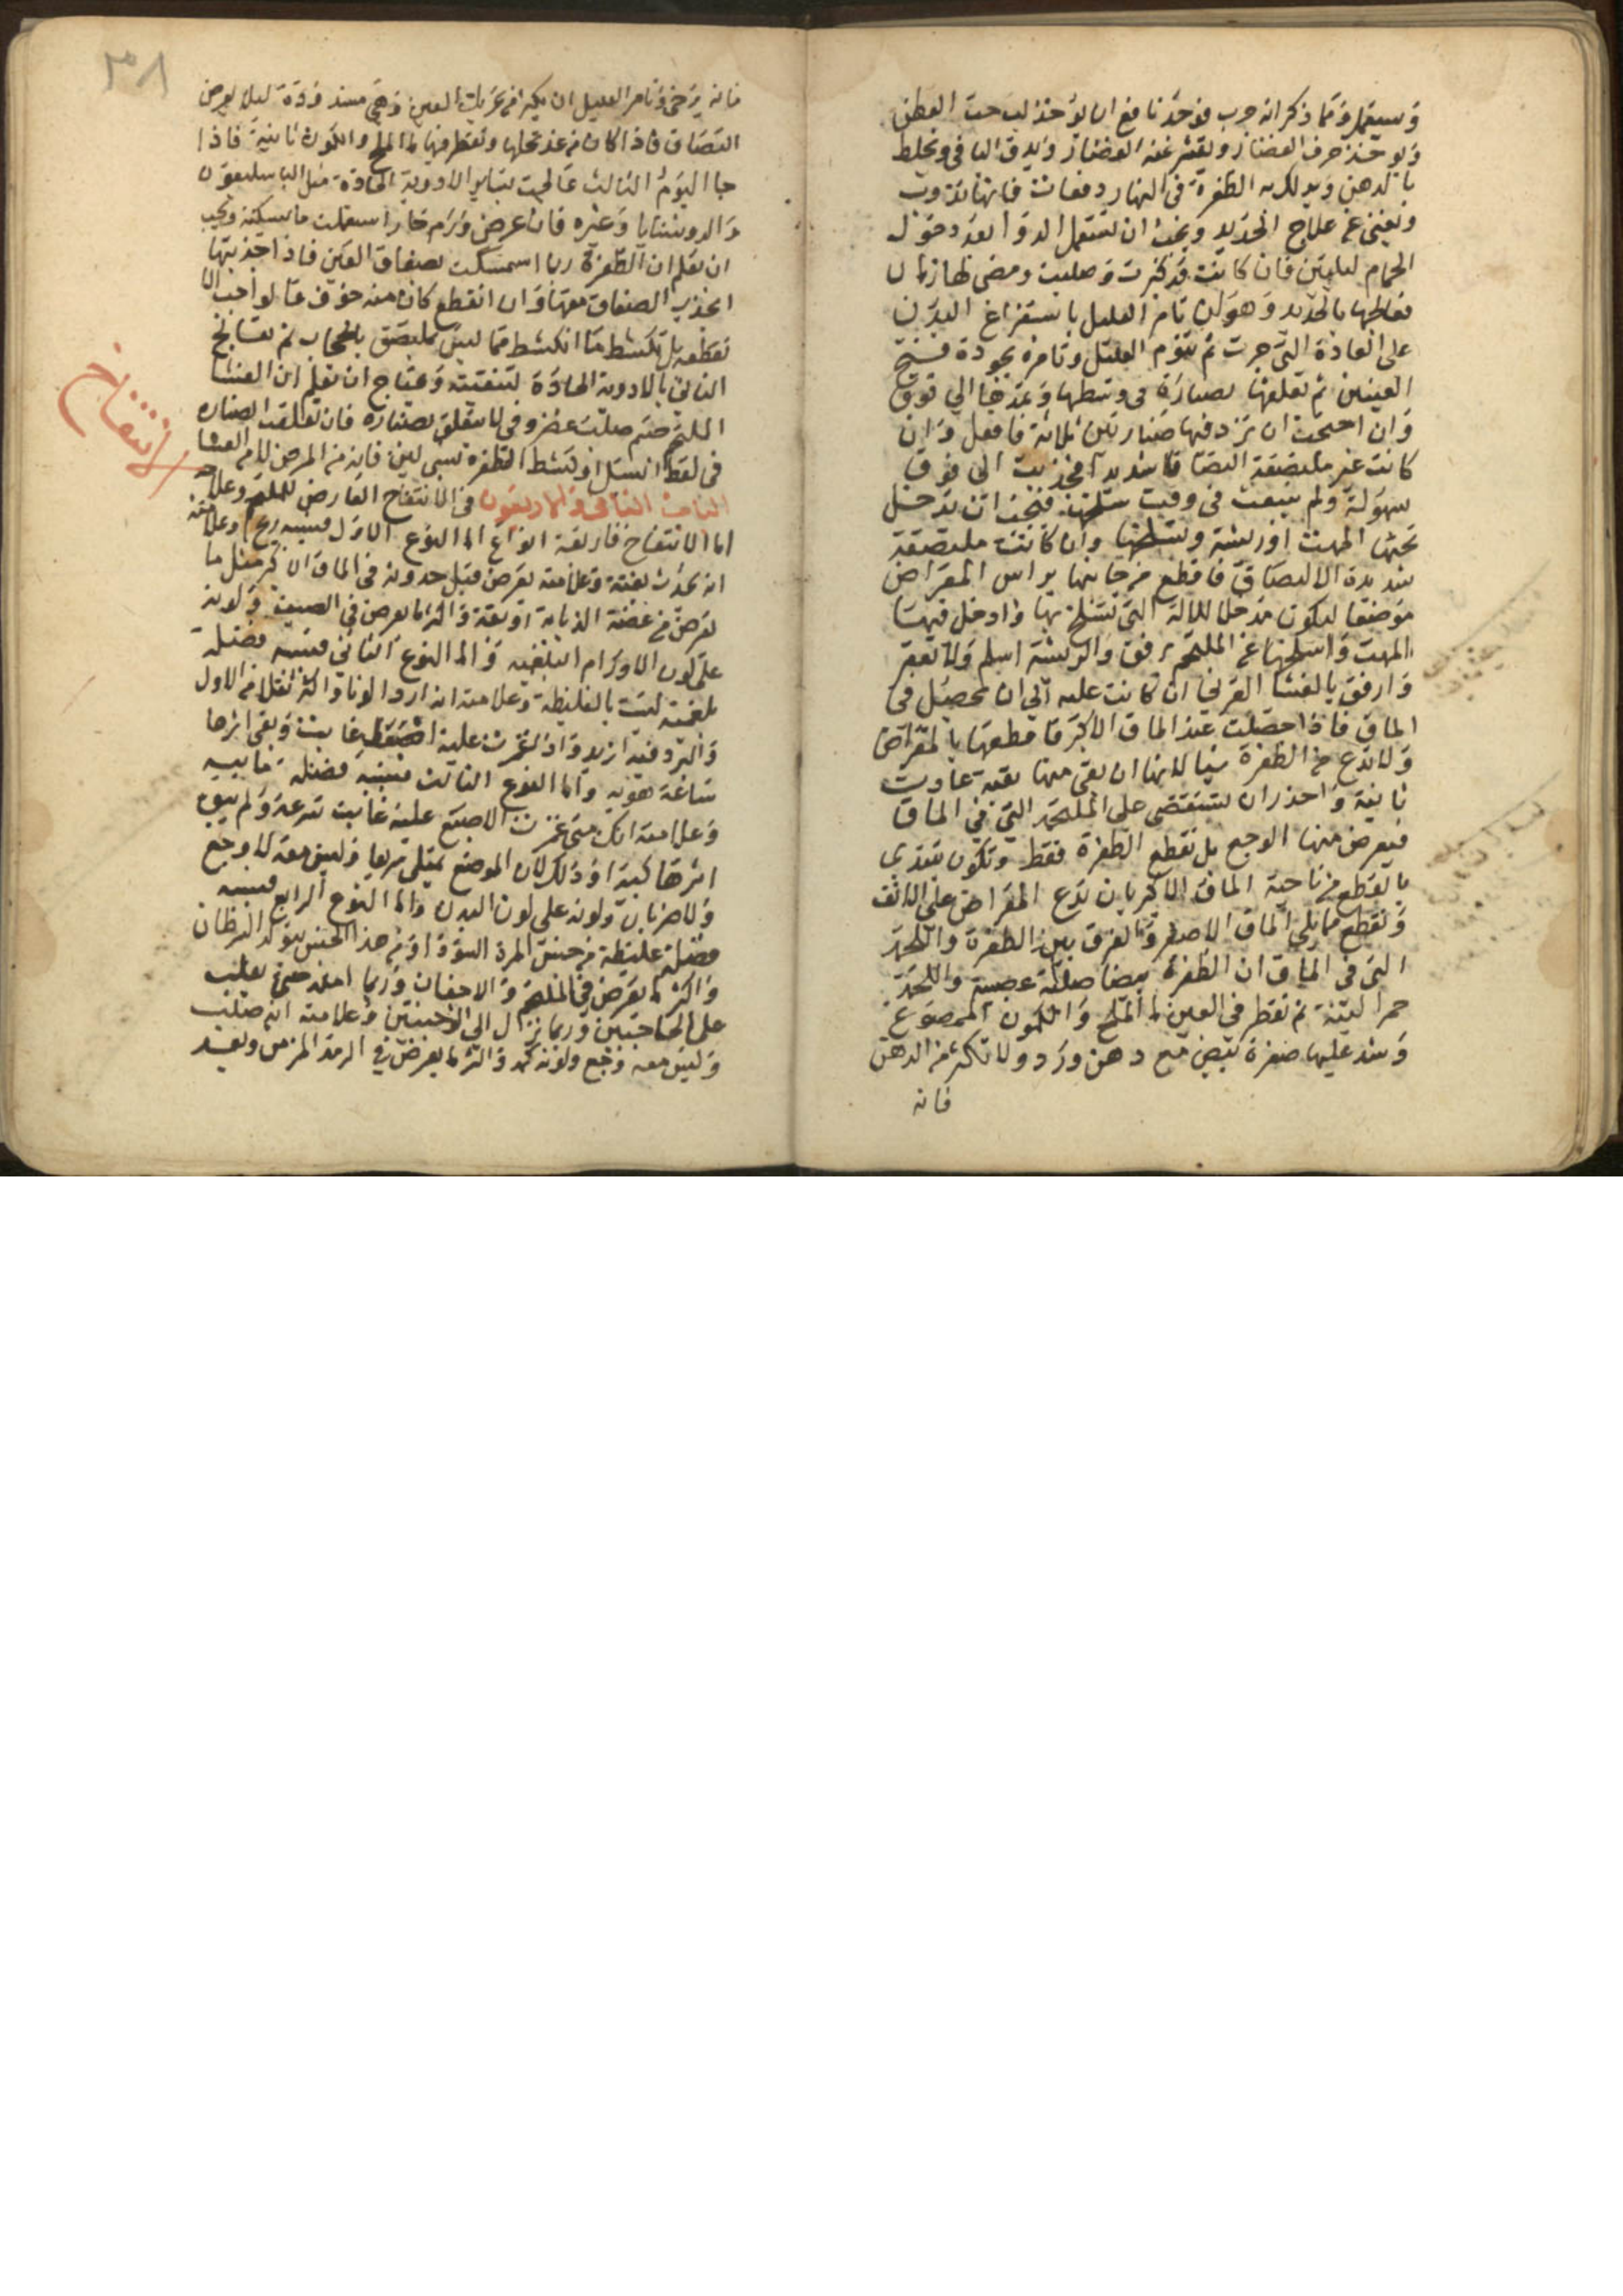 وسيعمل ومما ذكر انه جرب فوجد نافع ان يوخذ لب حب القطن
ويوخذ خزف الغضار ويقشر عنه الغضار ويدق الباقي ويخلط
بالدهن ويدلك به الظفرة في النهار دفعات فانها تذوب
ويغني عن علاج الحديد ويجب ان تستعمل الدوا بعد دخول
الحمام ليلين فان كانت قد كبرت وصلبت ومضى لها زمان
فعالجها بالحديد وهو ان تامر العليل باستفراغ البدن
على العادة التي جرت ثم تنوم العليل وتامره بجودة فتح
العينين ثم تعلقها بصنارة في وسطها وتمدها الي فوق
وان احتجت ان تزد فيها صنارتين ثلاثة فافعل وان
كانت غير ملتصقة التصاقا شديدا انجذبت الى فوق
بسهولة ولم تتعب في وقت سلخها فيجب ان تدخل
تحتها المهت او ريشة وتسلخها وان كانت ملتصقة
شديدة الالتصاق فاقطع من جانبها براس المقراض
موضعا ليكون مدخلا للالة التي تسلخ بها وادخل فيها
المهت واسلخها عن الملتحم برفق والريشة اسلم ولا تعقر
وارفق بالغشا القرني ان كانت عليه الي ان تحصل في
الماق فاذا حصلت عند الماق الاكبر فاقطعها بالمقراض
ولا تدع من الظفرة شيا لانها ان بقي منها بقية عادت
ثانية واحذر ان تستقصي على اللحمة التي في الماق
فيعرض منها الوجع بل تقطع الظفرة فقط وتكون تبتدي
بالقطع من ناحية الماق الاكبر بان تدع المقراض على الانف
وتقطع مما يلي الماق الاصغر والفرق بين الظفرة واللحمة
التي في الماق ان الظفرة بيضا صلبة عصبية واللحمة
حمرا لينة ثم تقطر في العين ما الملح والكمون الممضوغ
وشد عليها صفرة بيض مع دهن ورد ولا تكثر من الدهن
فانه
٣٨
فانه يرخي وتامر العليل ان يكثر من تحريك العين وهي مشدودة ليلا يعرض
التصاق فاذا كان من غد تحلها وتقطر فيها ما الملح والكمون ثانية فاذا
جا اليوم الثالث عالجت بساير الادوية الحادة مثل الباسليقون
والروشنايا وغيره فان عرض ورم حار استعملت ما يسكنه ويجب
ان تعلم ان الظفرة ربما استمسكت بصفاق العين فاذا اجذبتها
انجذب الصفاق معها وان انقطع كان منه خوف فالواجب الا
تقطعه بل تكشط ما انكشط مما ليس بملتصق بالحجاب ثم تعالج
الباقي بالادوية الحادة لتنقيته وتحتاج ان تعلم ان الغشا
الملتحم جسم صلب غضروفي لا يتعلق بصناره فان تعلقت الصناره
في لقط السبل او كشط الظفره بشي لين فانه من المرض لا من الغشا
الباب الثاني والاربعون في الانتفاخ العارض للملتحم وعلاجه
الانتفاخ
اما الانتفاخ فاربعة انواع اما النوع الاول فسببه ريح وعلامته
انه يحدث بغتة وعلامته يعرض قبل حدوثه في الماق الاكبر مثل ما
يعرض من عضة الذبابة او بقة واكثر ما يعرض في الصيف ولونه
على لون الاورام البلغميه واما النوع الثاني فسببه فضلة
بلغمية ليست بالغليظة وعلامته انه اردا لونا واكثر ثقلا من الاول
والبرد فيه ازيد واذا غمزت عليه اصبعك غابت وبقي اثرها
ساعة هوية واما النوع الثالث فسببه فضلة مائيه
وعلامته انك متى غمزت الاصبع عليه غابت بسرعة ولم يبق
اثرها كبير اثر وذلك لان الموضع يمتلي سريعا وليس معه الا وجع
ولا ضربان ولونه على لون البدن واما النوع الرابع فسببه
فضلة غليظة من جنس المرة السودا ومن هذا الجنس يتولد السرطان
واكثر ما يعرض في الملتحم والاجفان وربما امتد حتى يغلب
على الحاجبين وربما نزل الى الوجنتين وعلامته انه صلب
وليس معه وجع ولونه كمد واكثر ما يعرض في الرمد المزمن وبعد